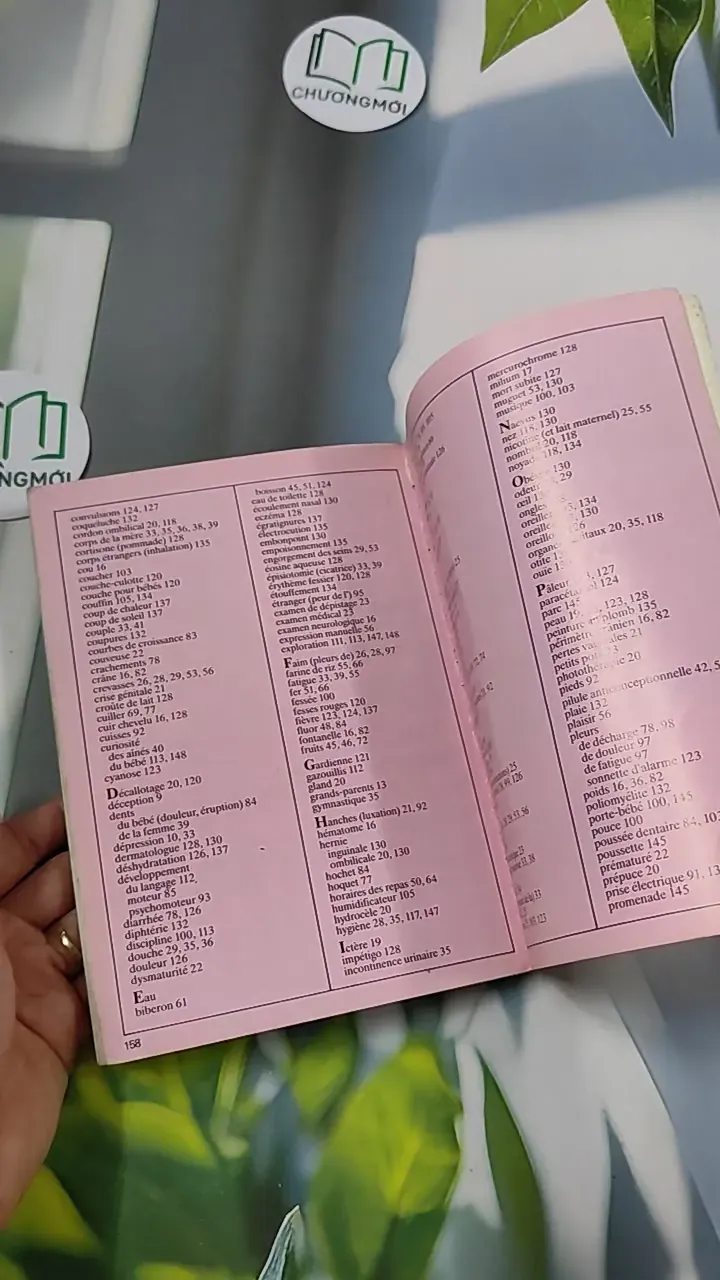 CHƯƠNGMỚI
NGMỚI
convulsions 124, 127
coqueluche 132
cordon ombilical 20, 118
corps de la mère 33, 35, 36, 38, 39
cortisone (pommade) 128
corps étrangers (inhalation) 135
cou 16
coucher 103
couche-culotte 120
couche pour bébés 120
couffin 105, 134
coup de chaleur 137
coup de soleil 137
couple 33, 41
coupures 132
courbes de croissance 83
couveuse 22
crachements 78
crâne 16, 82
crevasses 26, 28, 29, 53, 56
crise génitale 21
croûte de lait 128
cuiller 69, 77
cuir chevelu 16, 128
cuisses 92
curiosité
des aînés 40
du bébé 113, 148
cyanose 123
Décallotage 20, 120
déception 9
dents
du bébé (douleur, éruption) 84
de la femme 39
dépression 10, 33
dermatologue 128, 130
déshydratation 126, 137
développement
du langage 112,
moteur 85
psychomoteur 93
diarrhée 78, 126
diphtérie 132
discipline 100, 113
douche 29, 35, 36
douleur 126
dysmaturité 22
Eau
biberon 61
boisson 45, 51, 124
eau de toilette 128
écoulement nasal 130
eczéma 128
égratignures 137
électrocution 135
embonpoint 130
empoisonnement 135
engorgement des seins 29, 53
éosine aqueuse 128
épisiotomie (cicatrice) 33, 39
érythème fessier 120, 128
étouffement 134
étranger (peur de l') 95
examen de dépistage 23
examen médical 23
examen neurologique 16
expression manuelle 56
exploration 111, 113, 147, 148
Faim (pleurs de) 26, 28, 97
farine de riz 55, 66
fatigue 33, 39, 55
fer 51, 66
fessée 100
fesses rouges 120
fièvre 123, 124, 137
fluor 48, 84
fontanelle 16, 82
fruits 45, 46, 72
Gardienne 121
gazouillis 112
gland 20
grands-parents 13
gymnastique 35
Hanches (luxation) 21, 92
hématome 16
hernie
inguinale 130
ombilicale 20, 130
hochet 84
hoquet 77
horaires des repas 50, 64
humidificateur 105
hydrocèle 20
hygiène 28, 35, 117, 147
Ictère 19
impétigo 128
incontinence urinaire 35
158
mercurochrome 128
milium 17
mort subite 127
muguet 53, 130
musique 100, 103
Naevus 130
nez 118, 130
nicotine (et lait maternel) 25, 55
nombril 20, 118
118, 134
130
29
134
130
20, 35, 118
127
124
parc 145
peau 123, 128
peinture plomb 135
16, 82
21
petits
20
pieds 92
pilule anticonceptionnelle 42,
plaie 132
plaisir 56
pleurs
de décharge 78, 98
de douleur 97
de fatigue 97
sonnette d'alarme 123
poids 16, 36, 82
poliomyélite 132
porte-bébé 100, 145
pouce 100
poussée dentaire 84,
poussette 145
prématuré 22
prépuce 20
prise électrique 91,
promenade 145